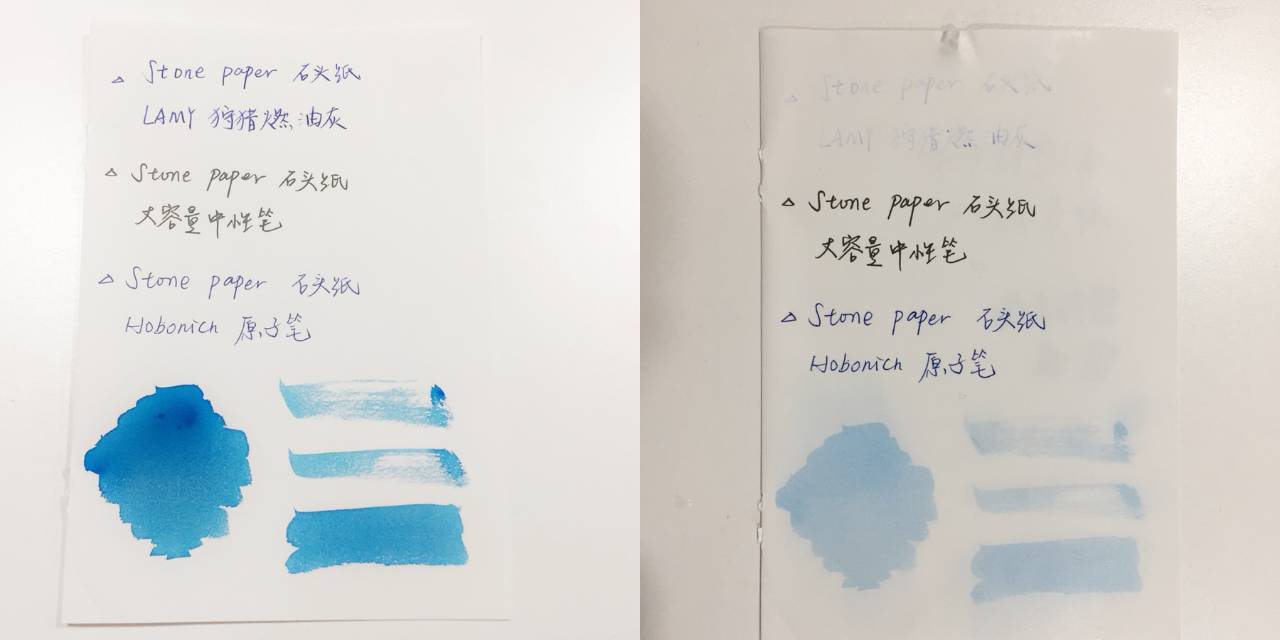 △ Stone paper 石头纸
LAMY 狩猎燃油灰
△ Stone paper 石头纸
大容量中性笔
△ Stone paper 石头纸
Hobonich 原子笔
△ Stone paper 石头纸
LAMY 狩猎燃油灰
△ Stone paper 石头纸
大容量中性笔
△ Stone paper 石头纸
Hobonich 原子笔